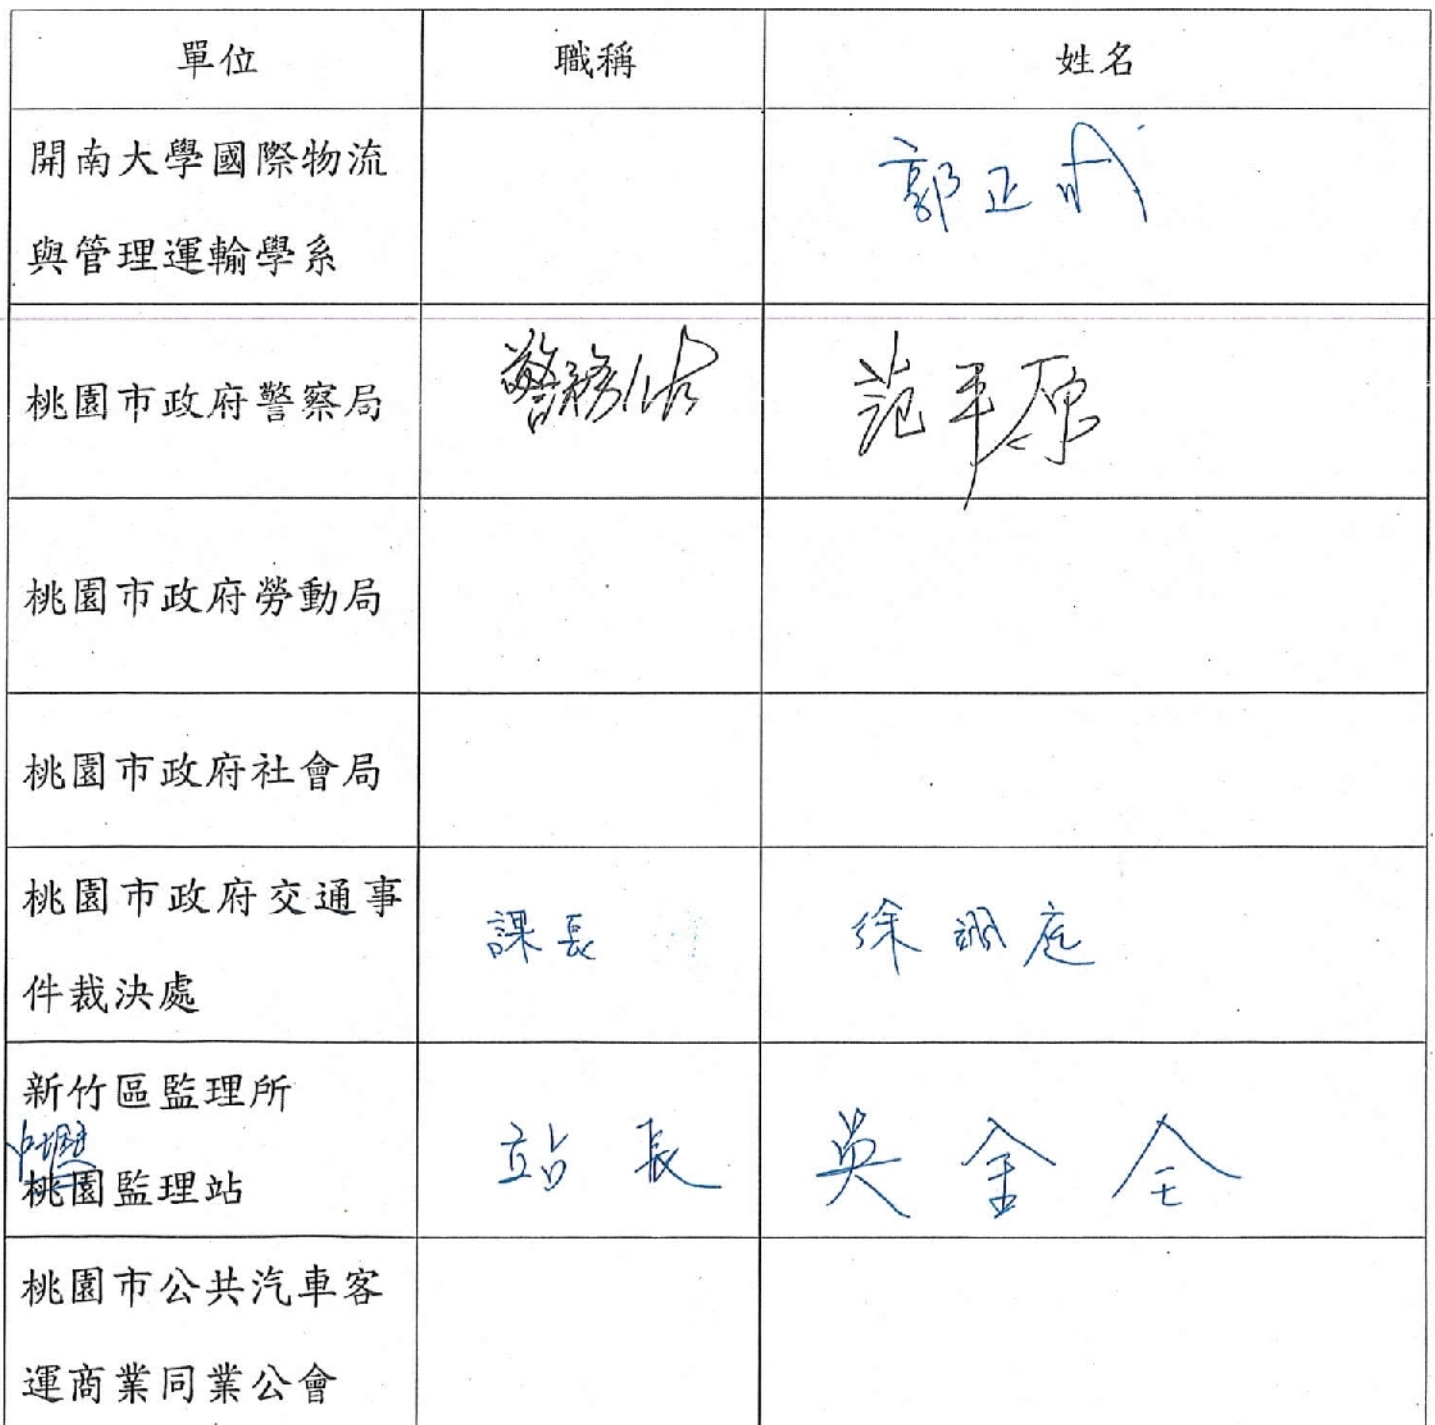 單位 職稱 姓名
開南大學國際物流
與管理運輸學系
郭正
桃園市政府警察局 警務佐 范平原
桃園市政府勞動局
桃園市政府社會局
桃園市政府交通事
件裁決處
課長 徐 庭
新竹區監理所
中壢
桃園監理站
站長 吳金全
桃園市公共汽車客
運商業同業公會